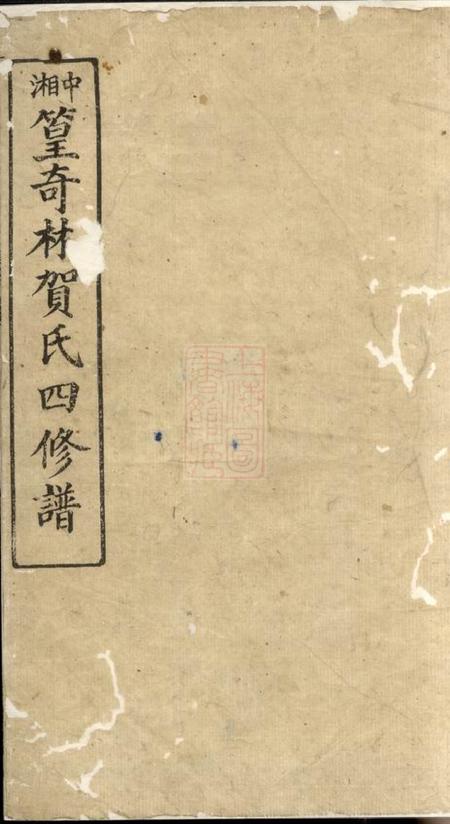 中湘
篁奇材賀氏四修譜
上海圖
書館藏